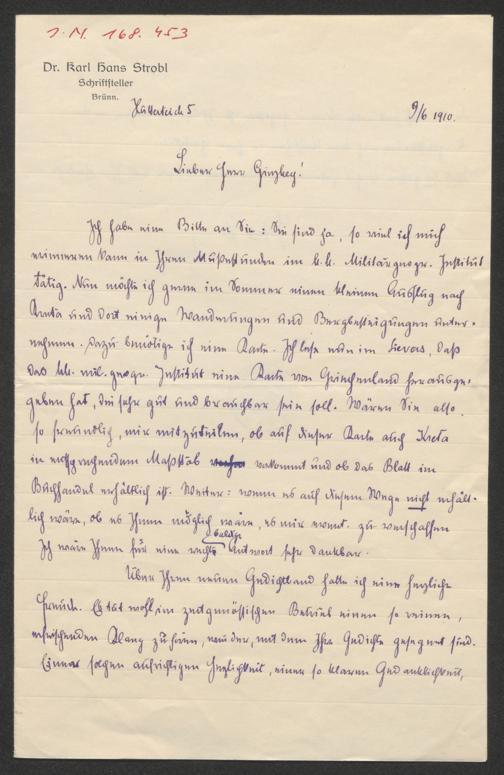 J. N. 168.453
Dr. Karl Hans Strobl
Schriftsteller
Brünn.
Hütterteich 5 9/6 1910.
Lieber Herr Ginzkey!
Ich habe eine Bitte an Sie: Sie sind ja, so viel ich mich
erinneren kann in Ihren Mußestunden im k.k. Militärgeogr. Institut
tätig. Nun möchte ich gerne im Sommer einen kleinen Ausflug nach
Kreta und dort einige Wanderungen und Bergbesteigungen unter-
nehmen. Dazu benötige ich eine Karte. Ich lese nun im Sievers, daß
das kk. mil. geogr. Institut eine Karte von Griechenland herausge-
geben hat, die sehr gut und brauchbar sein soll. Wären Sie also
so freundlich, mir mitzuteilen, ob auf dieser Karte auch Kreta
in entsprechendem Maßstab vorkommt und ob das Blatt im
Buchhandel erhältlich ist. Weiter: wenn es auf diesem Wege nicht erhält-
lich wäre, ob es Ihnen möglich wäre, es mir event. zu verschaffen
Ich wäre Ihnen für eine recht baldige Antwort sehr dankbar.
Über Ihren neuen Gedichtband hatte ich eine herzliche
Freude. Es tut wohl, im zeitgenössischen Betrieb einen so reinen,
erfrischenden Klang zu hören, wie der, mit dem Ihre Gedichte gesegnet sind.
Einer solchen aufrichtigen Herzlichkeit, einer so klaren Gedanklichkeit,